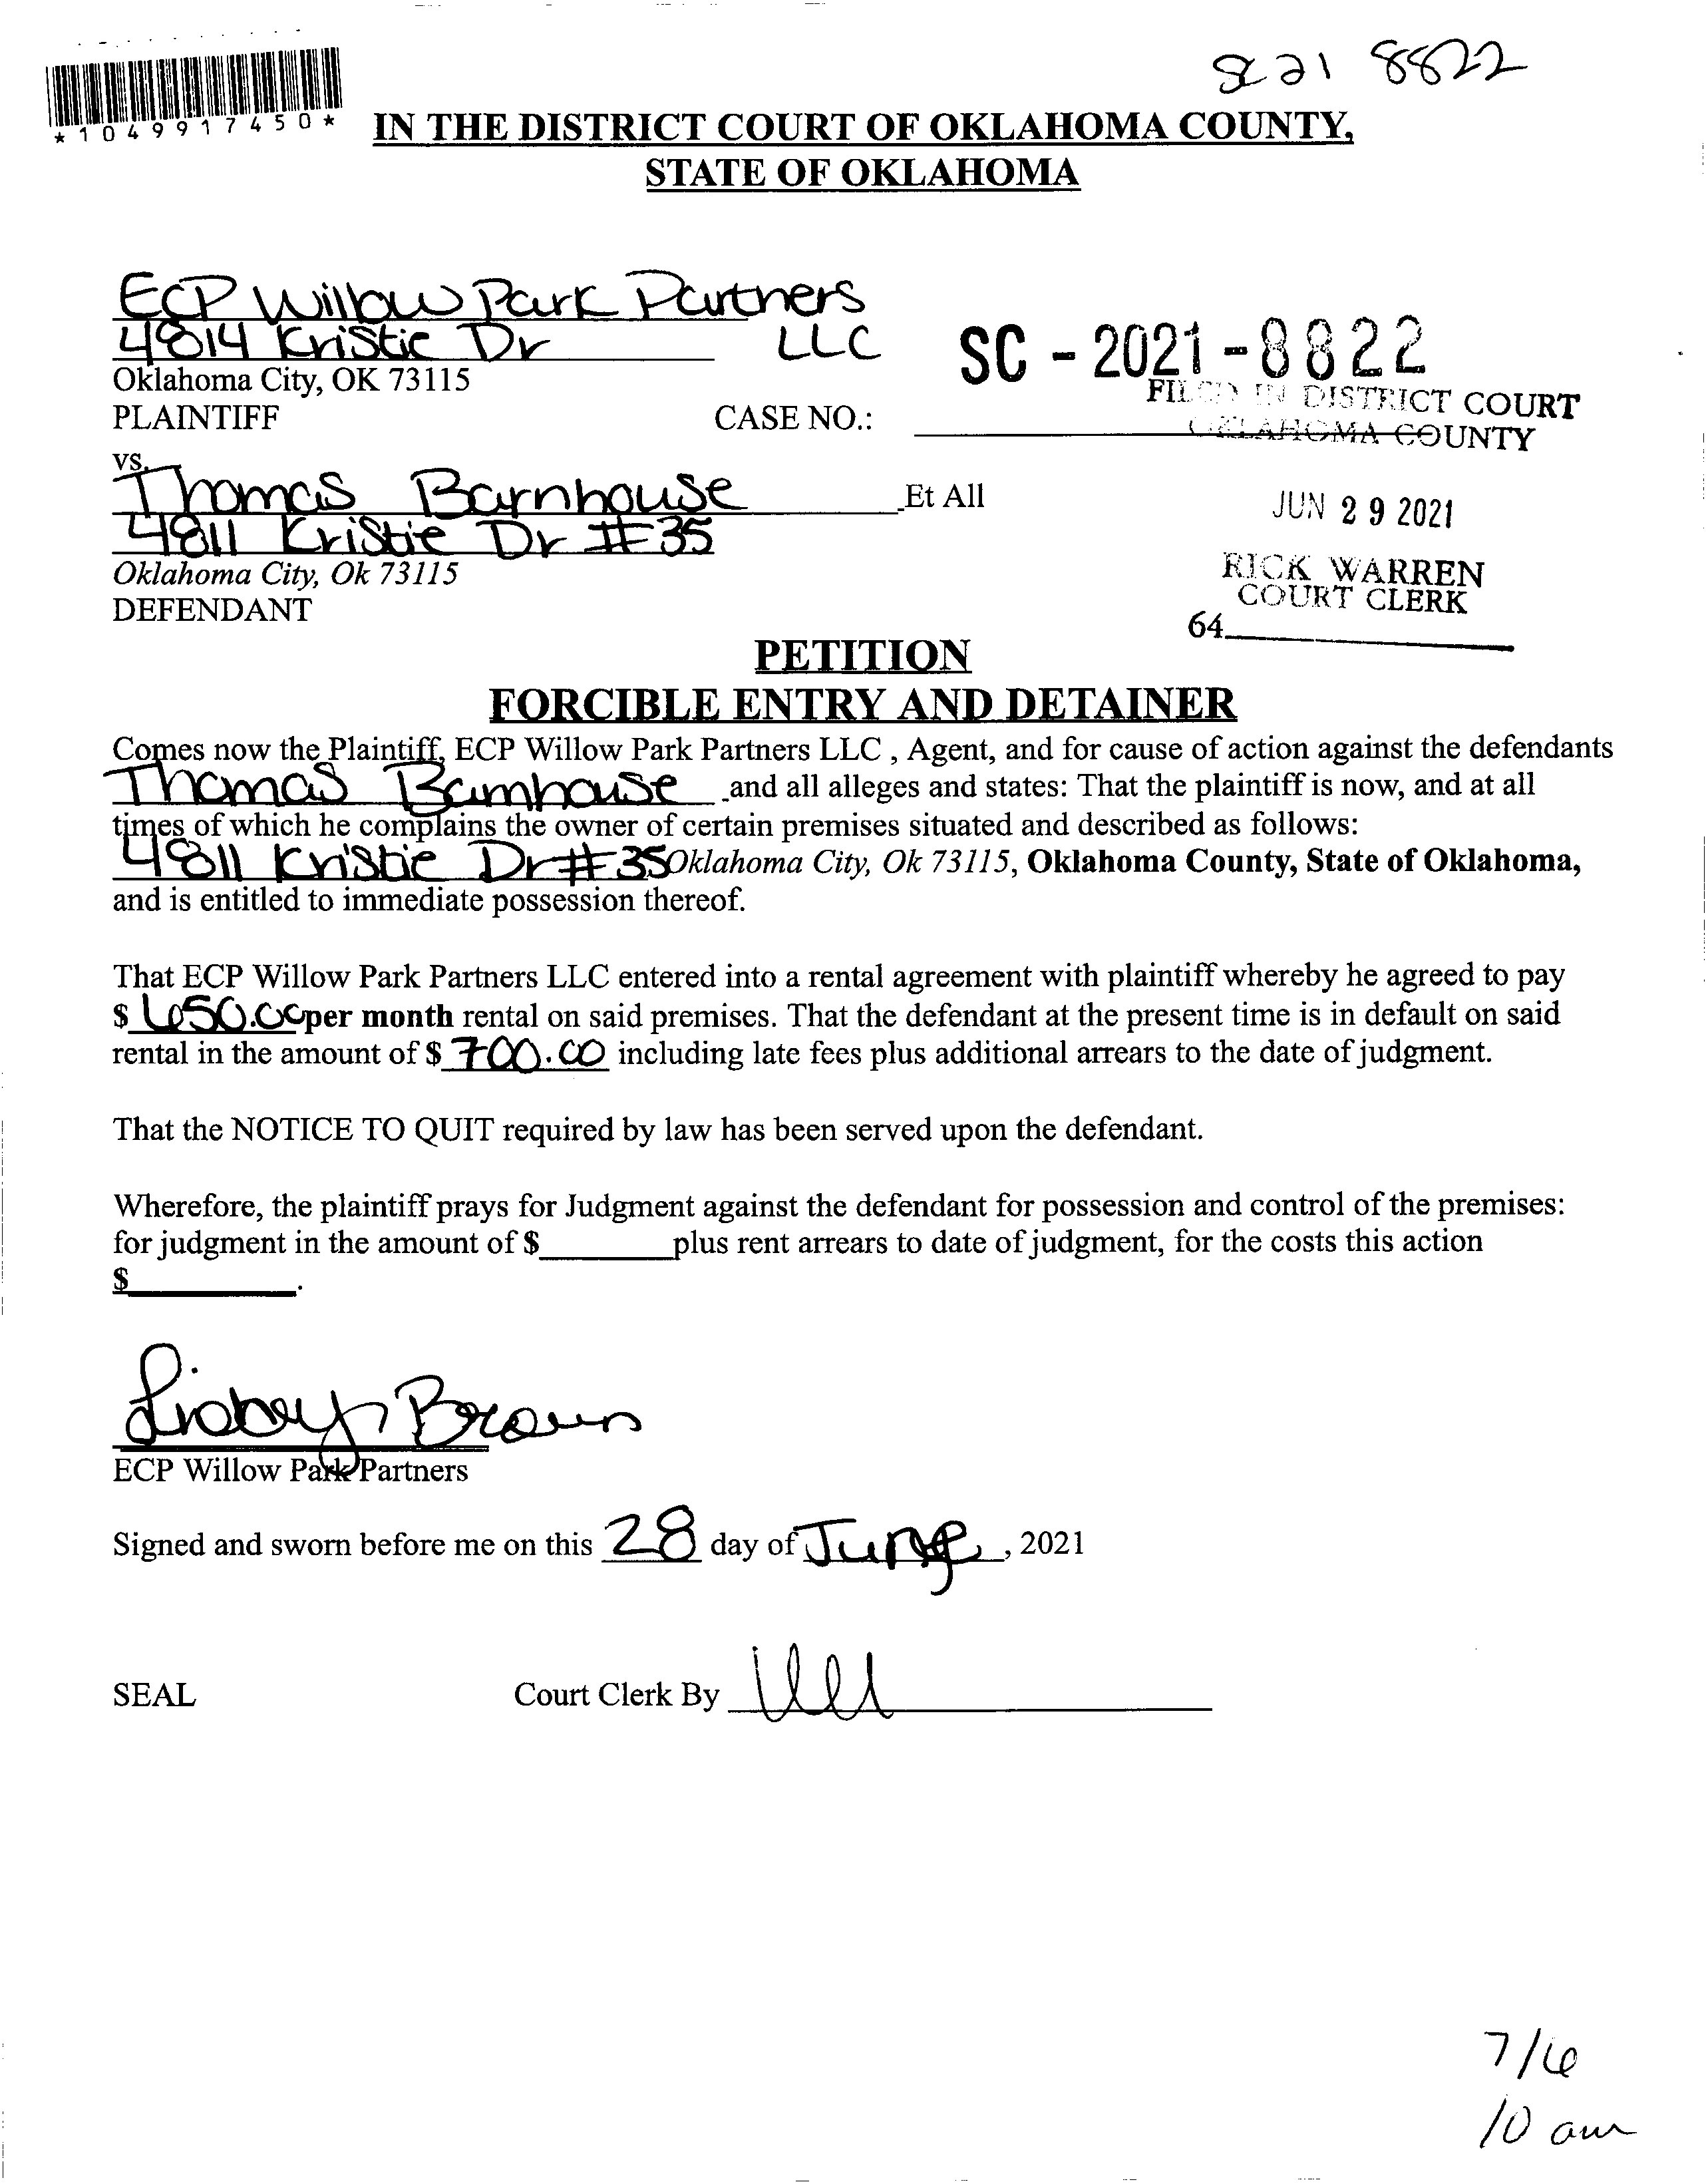 SC 21 8822
*1049917450*
IN THE DISTRICT COURT OF OKLAHOMA COUNTY,
STATE OF OKLAHOMA
ECP Willow Park Partners
4814 Kristie Dr LLC
Oklahoma City, OK 73115
PLAINTIFF CASE NO.:
SC - 2021 - 8822
FILED IN DISTRICT COURT
OKLAHOMA COUNTY
vs.
Thomas Barnhouse Et All
4811 Kristie Dr #35
Oklahoma City, Ok 73115
DEFENDANT
JUN 29 2021
RICK WARREN
COURT CLERK
64
PETITION
FORCIBLE ENTRY AND DETAINER
Comes now the Plaintiff, ECP Willow Park Partners LLC , Agent, and for cause of action against the defendants
Thomas Barnhouse and all alleges and states: That the plaintiff is now, and at all
times of which he complains the owner of certain premises situated and described as follows:
4811 Kristie Dr #35 Oklahoma City, Ok 73115, Oklahoma County, State of Oklahoma,
and is entitled to immediate possession thereof.
That ECP Willow Park Partners LLC entered into a rental agreement with plaintiff whereby he agreed to pay
$ 650.00 per month rental on said premises. That the defendant at the present time is in default on said
rental in the amount of $ 700.00 including late fees plus additional arrears to the date of judgment.
That the NOTICE TO QUIT required by law has been served upon the defendant.
Wherefore, the plaintiff prays for Judgment against the defendant for possession and control of the premises:
for judgment in the amount of $ plus rent arrears to date of judgment, for the costs this action
$ .
Brown
ECP Willow Park Partners
Signed and sworn before me on this 28 day of June, 2021
SEAL Court Clerk By
7/6
10 am